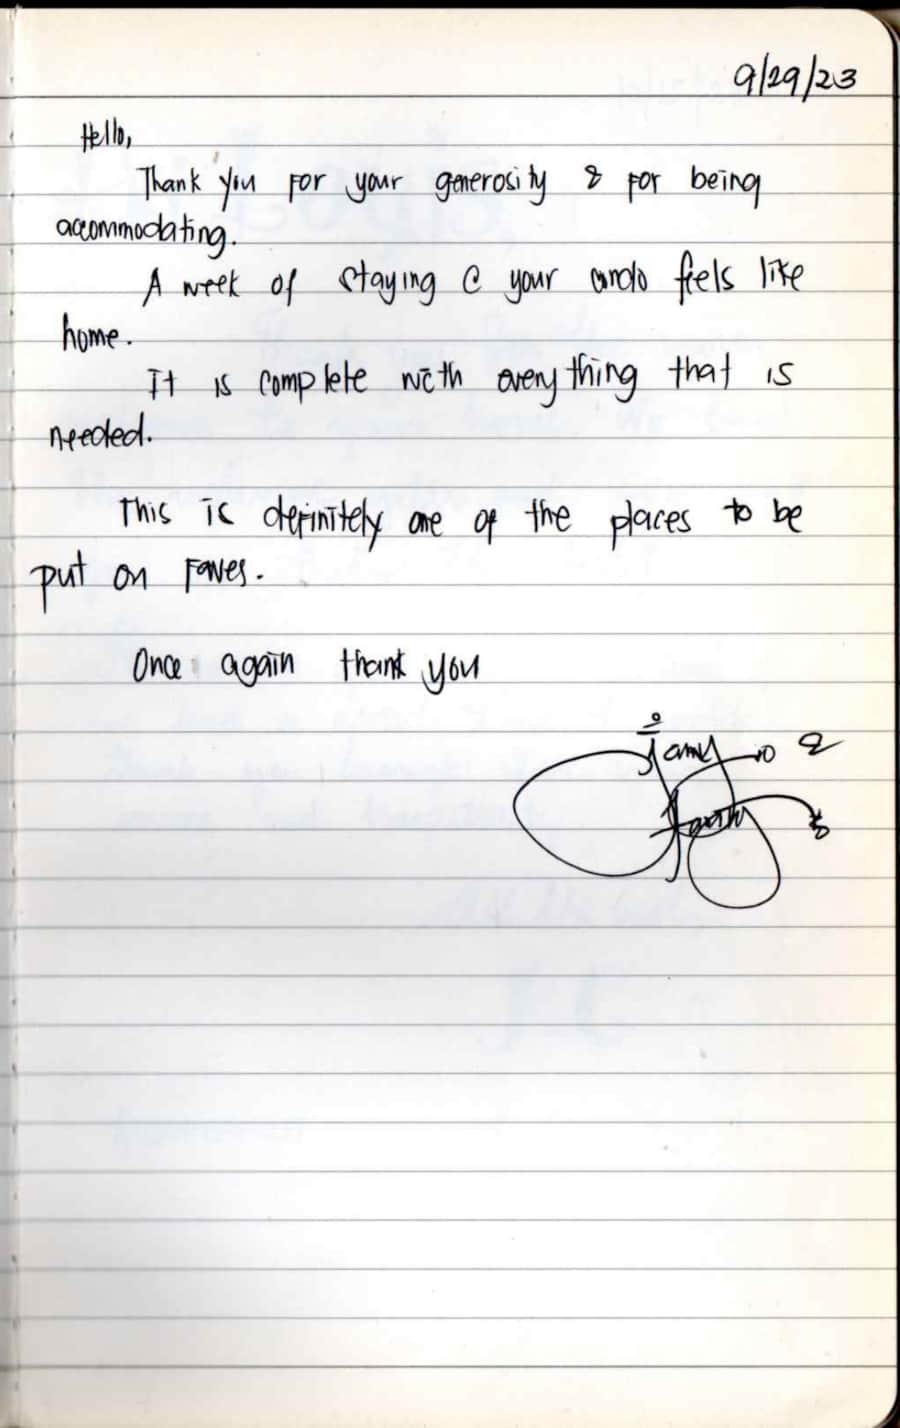 9/29/23
Hello,
Thank you for your generosity & for being
accommodating.
A week of staying @ your condo feels like
home.
It is complete with everything that is
needed.
This is definitely one of the places to be
put on Faves.
Once again thank you